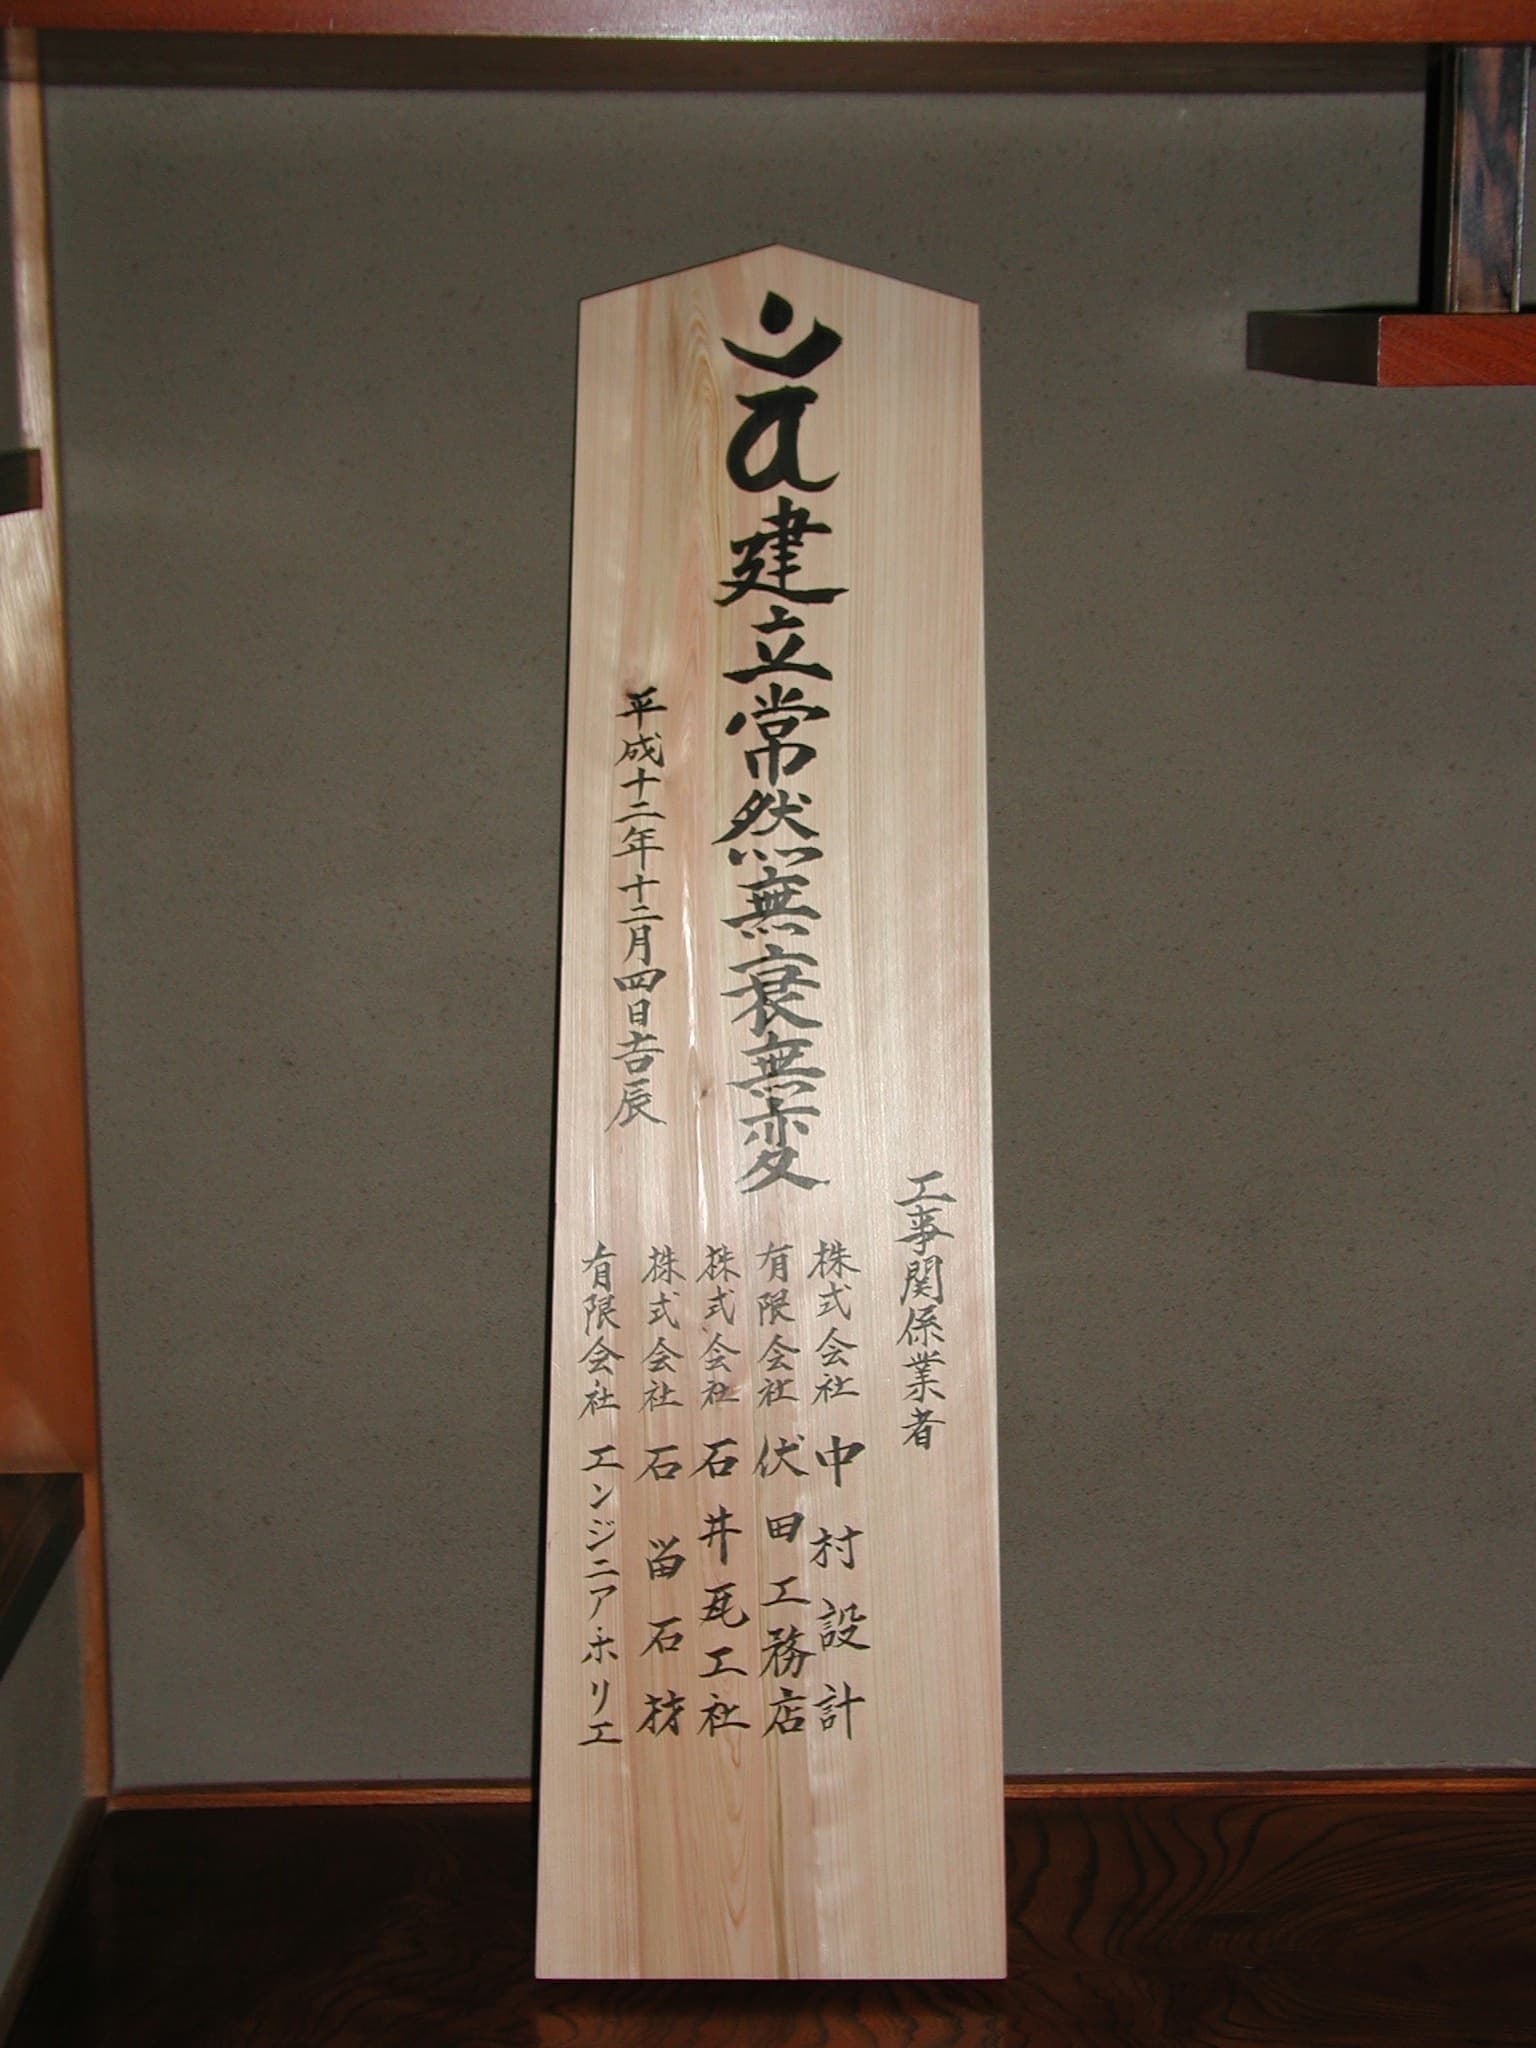 工事関係業者
株式会社 中村設計
有限会社 伏田工務店
株式会社 石井瓦工社
株式会社 石留石材
有限会社 エンジニアホリエ
建立常然無衰無変
平成十二年十二月四日吉辰